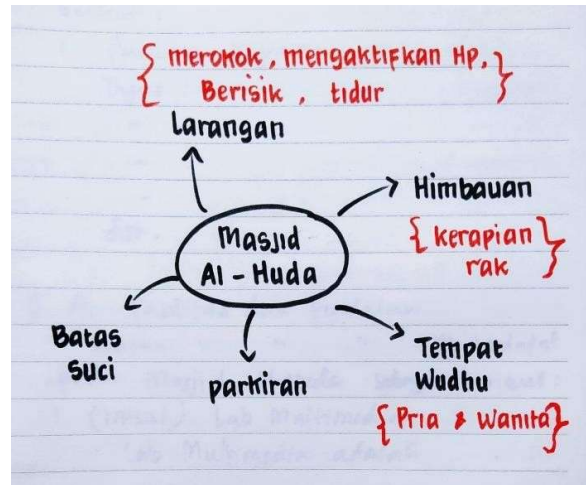 { merokok, mengaktifkan Hp, }
Berisik, tidur
Larangan
Himbauan
{ kerapian }
rak
Masjid
Al - Huda
Batas
suci
parkiran
Tempat
Wudhu
{ Pria & Wanita }